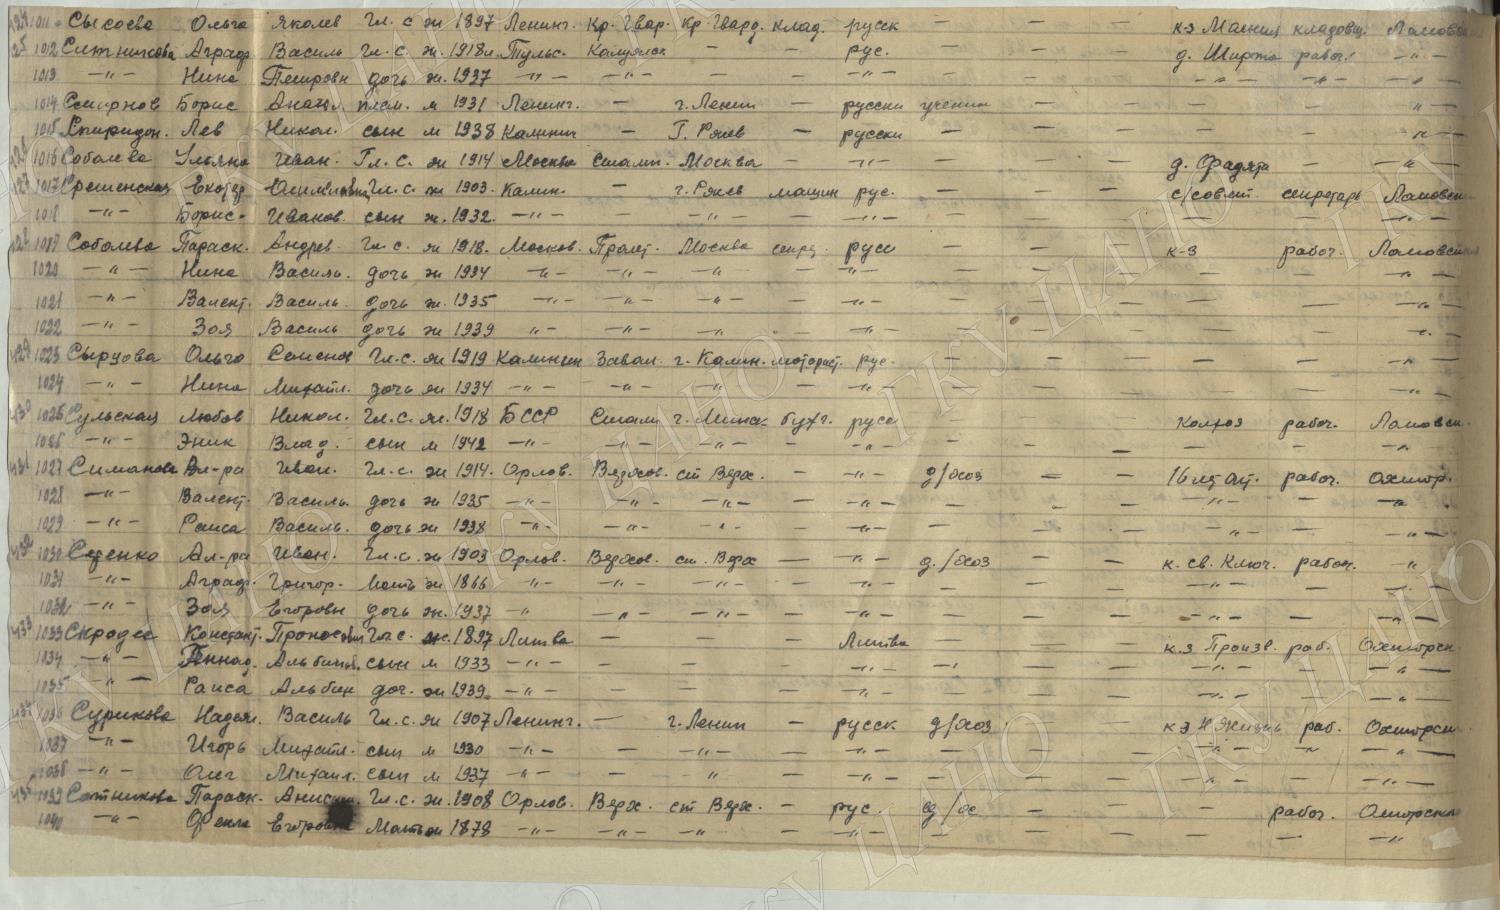 1011 Сысоева Ольга Яковл Гл. с ж 1897 Ленинг. Кр. Гвар. Кр. Гвард. клад. русск — — — кз Маяк кладовщ.
1012 Ситникова Аград. Василь Гл. с. ж. 1918 Тульс. — — рус. — — — д. Ширта рабоч. —"—
1013 —"— Нина Петровн дочь ж. 1937 —"— —"— — — —"— — — — —"— —"— —"—
1014 Смирнов Борис Анат. плем. м 1931 Ленинг. — г. Ленин — русски учении — — —"—
1015 Спиридон. Лев Никол. сын м 1938 Калинин — Г. Ржев — русски — — — —"—
1016 Соболева Ульяна Иван. Гл. с. ж 1914 Москва Сталин. Москва — —"— — — — — —"—
1017 Срешенская Екатер Гл. с ж 1903. Калин. — г. Ржев машин рус. — — — с/совет. секретарь Ламовск
1018 —"— Борис Иванов. сын ж. 1932. —"— —"— — —"— — — — — — —"—
1019 Соболева Параск. Андрев. Гл. с. ж 1918. Москов. Пролет. Москва русс — — — к-з рабоч. Ламовский
1020 —"— Нина Василь. дочь ж 1934 —"— —"— —"— — —"— — — — — — —"—
1021 —"— Валент. Василь. дочь ж. 1935 —"— —"— —"— — —"— — — — — — —"—
1022 —"— Зоя Василь дочь ж 1939 —"— —"— —"— — —"— — — — — — —"—
1023 Сырцова Ольга Семенов Гл. с. ж 1919 Калинин Завол. г. Калин. моторист. рус. — — — — — —"—
1024 —"— Нина Михайл. дочь ж 1934 —"— —"— —"— — —"— — — — — — —"—
1025 Сульская Любов Никол. Гл. с. ж. 1918 БССР Сталин г. Минск бухг. русс — — — Колхоз рабоч. Ламовск.
1026 —"— Эник Влад. сын м 1942 —"— —"— —"— — —"— — — — — — —"—
1027 Симанова Ал-ра Иван. Гл. с. ж 1914. Орлов. Верхов. ст Верх. — —"— д/хоз — — 16 лет Окт. рабоч. Охитор.
1028 —"— Валент. Василь. дочь ж 1935 —"— —"— —"— — —"— — — — —"— — —"—
1029 —"— Раиса Василь. дочь ж 1938 —"— —"— —"— — —"— — — — —"— — —"—
1030 Сценко Ал-ра Иван. Гл. с. ж 1903 Орлов. Верхов. ст. Верх — —"— д./хоз — — к. св. Ключ. рабоч. —"—
1031 —"— Аград. Григор. Мать ж 1866 —"— —"— —"— — —"— — — — —"— — —"—
1032 —"— Зоя Егоровн дочь ж. 1937 —"— —"— —"— — —"— — — — —"— — —"—
1033 Констант. Гл. с. ж. 1897 Литва — — — Литва — — — к.з Произв. раб. Охиторск.
1034 —"— Геннад. Альбинов. сын м 1933 —"— — — — —"— — — — —"— — —"—
1035 —"— Раиса Альбин доч. ж 1939. —"— — — — —"— — — — —"— — —"—
1036 Сурикова Надеж. Василь Гл. с. ж 1907 Ленинг. — г. Ленин — русск д/хоз — — к з Н Жизнь раб. Охиторск.
1037 —"— Игорь Михайл. сын м 1930 —"— — —"— — —"— — — — —"— —"— —"—
1038 —"— Олег Михаил. сын м 1937 —"— — —"— — —"— — — — —"— — —"—
1039 Сотникова Параск. Гл. с. ж. 1908 Орлов. Верх. ст Верх. — рус. д/х — — рабоч. Охиторский
1040 —"— Фекла Егоровна Мать ж 1878 —"— —"— —"— — —"— — — — — — —"—
ГКУ ЦАНО